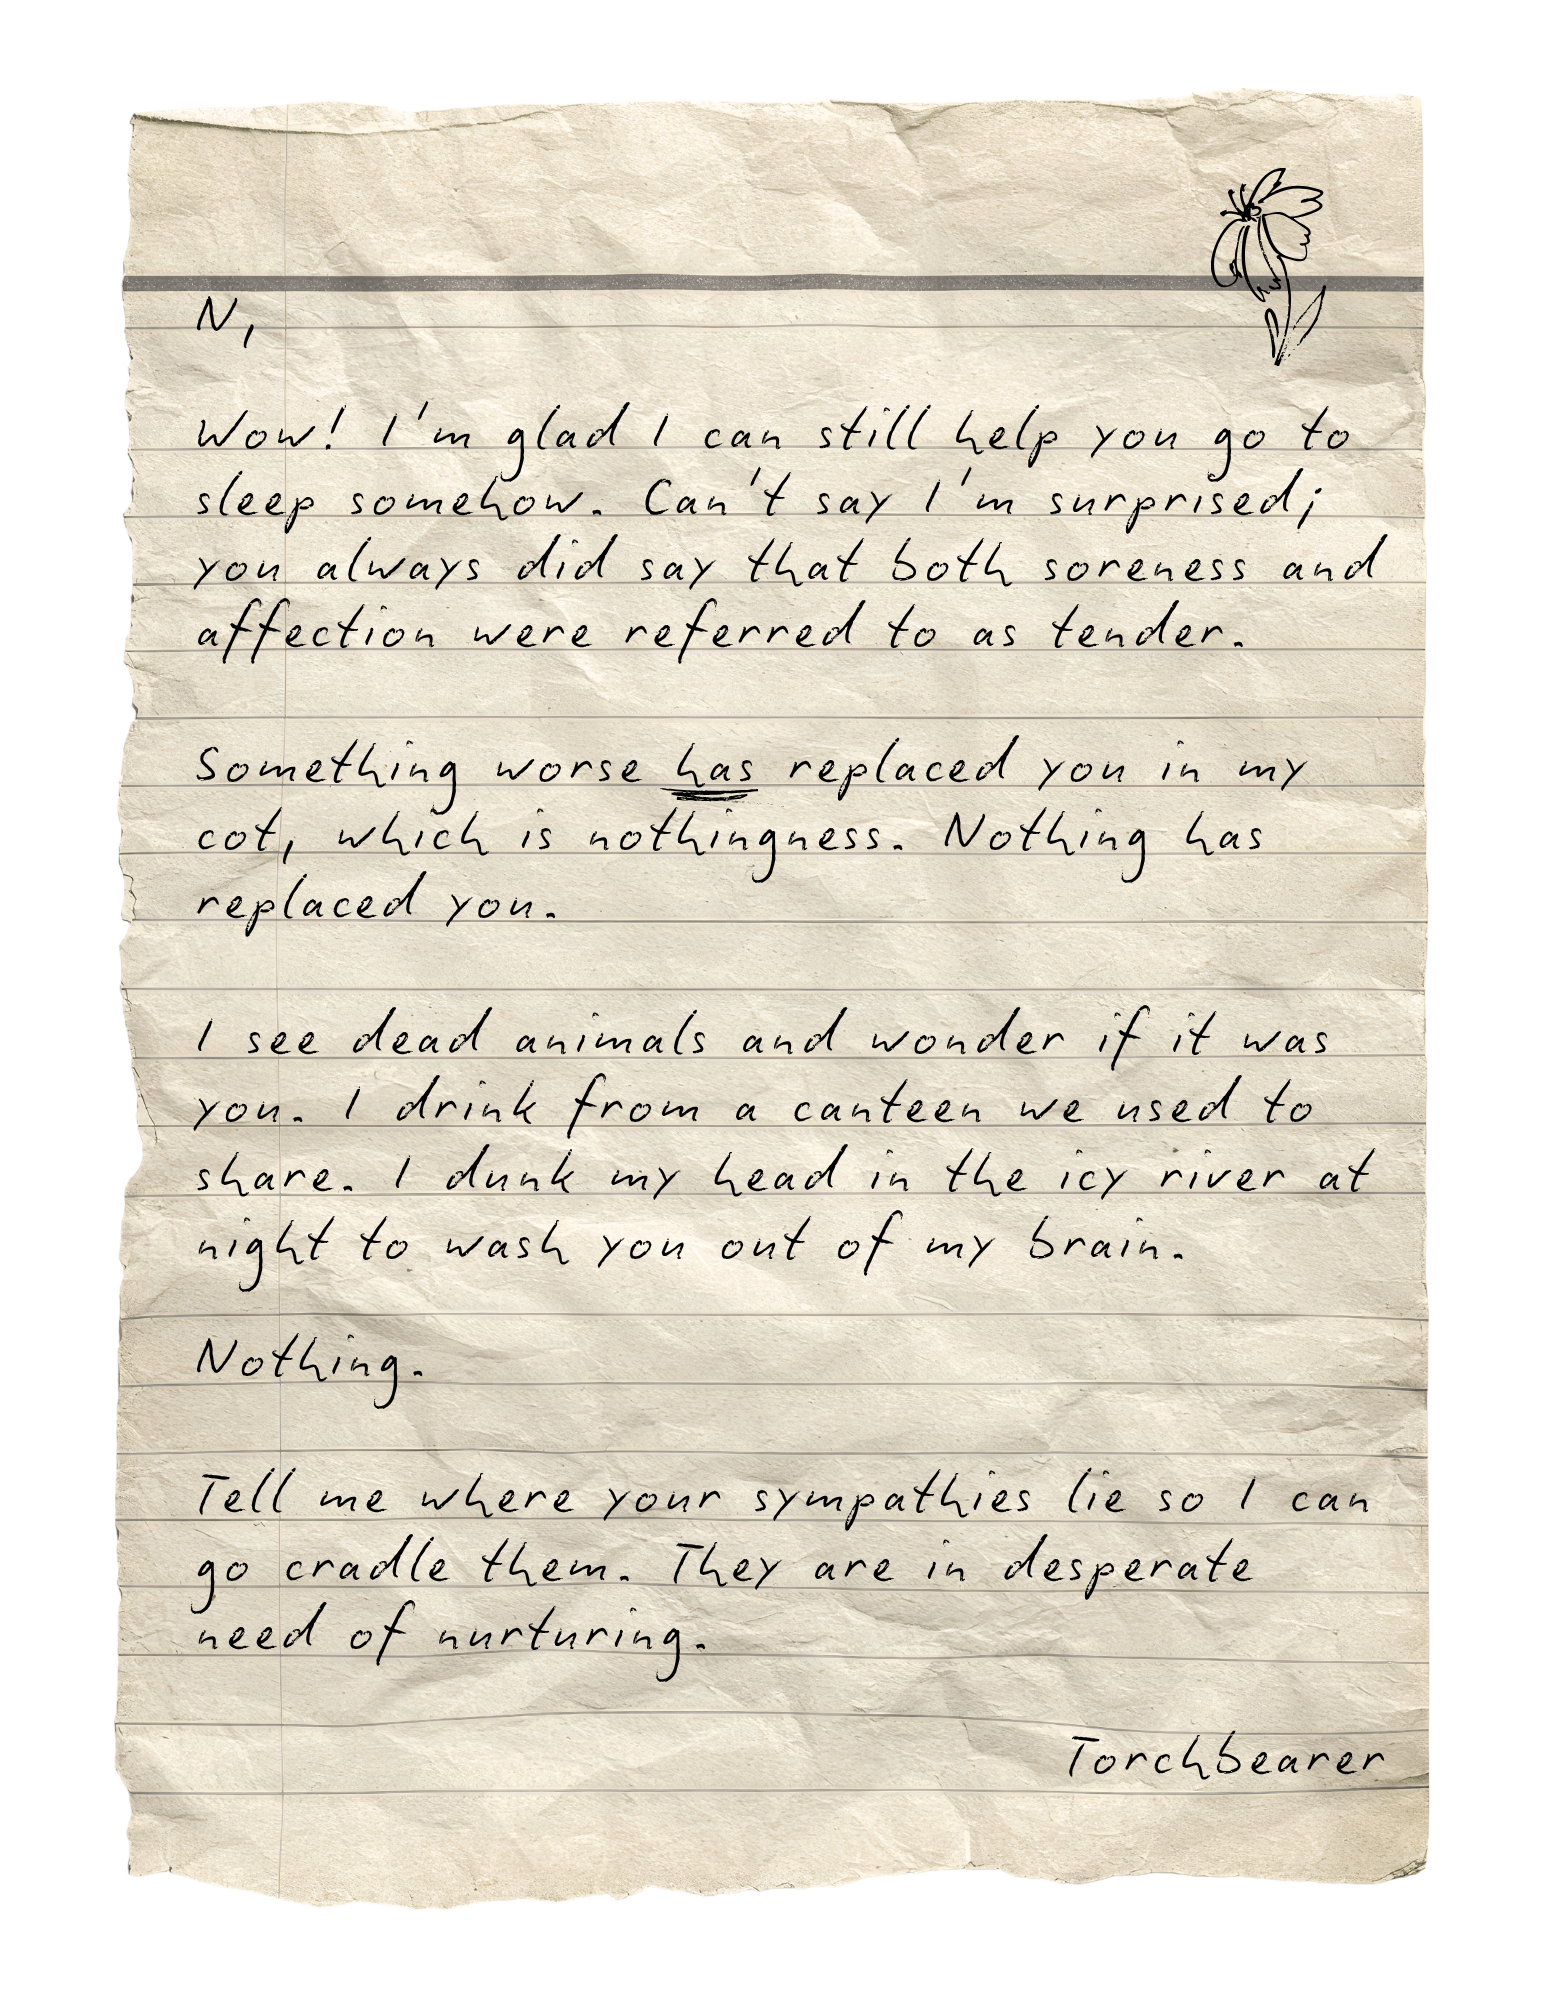 N,
Wow! I'm glad I can still help you go to
sleep somehow. Can't say I'm surprised;
you always did say that both soreness and
affection were referred to as tender.
Something worse has replaced you in my
cot, which is nothingness. Nothing has
replaced you.
I see dead animals and wonder if it was
you. I drink from a canteen we used to
share. I dunk my head in the icy river at
night to wash you out of my brain.
Nothing.
Tell me where your sympathies lie so I can
go cradle them. They are in desperate
need of nurturing.
Torchbearer